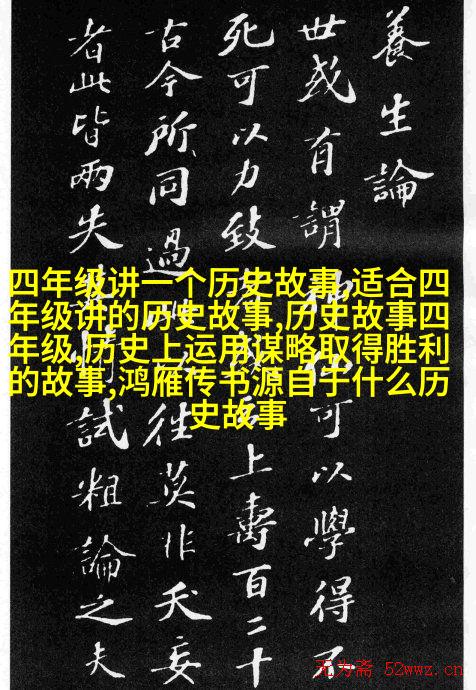 養生論
世或有謂神仙可以學得不
死可以力致上壽百二十
古今所同過往莫非夭妄
者此皆兩失試粗論之夫
四年级讲一个历史故事,适合四
年级讲的历史故事,历史故事四
年级,历史上运用谋略取得胜利
的故事,鸿雁传书源自于什么历
史故事
无为斋 52wwz.cn